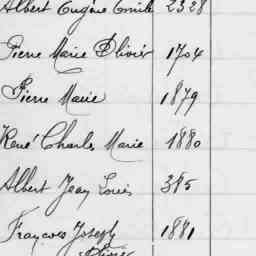 Albert Eugène Emile 2328
Pierre Marie Olivier 1704
Pierre Marie 1879
René Charles Marie 1880
Albert Jean Louis 385
François Joseph 1881